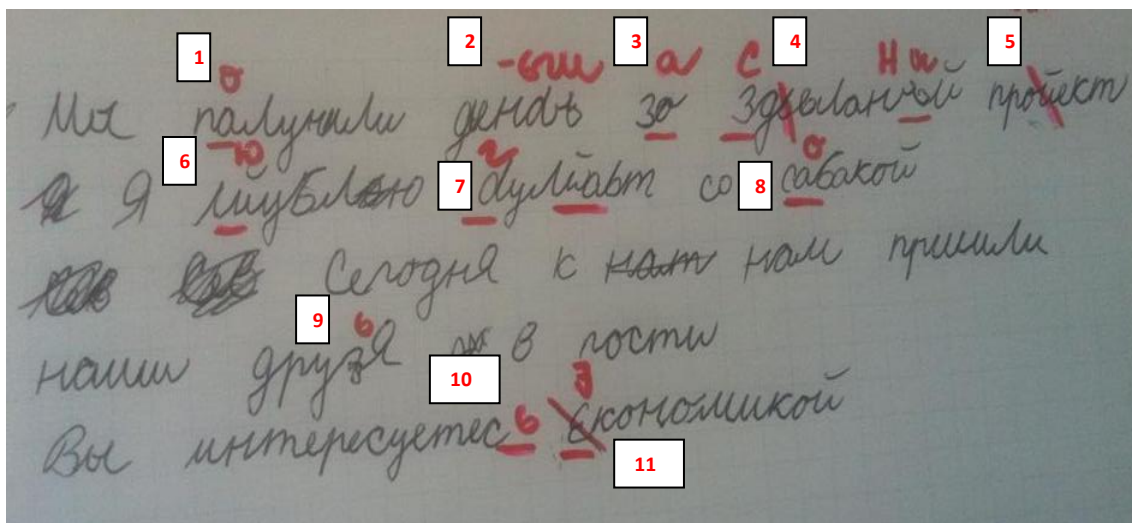 1 2 3 4 5
о -ьги а С Н ы
Мы палучили дендь зо Здьеланой пройект
6 ю 7 г 8 о
Я лиублю dулйавт со сабакой
Сегодня к нам пришли
9 ь
наши друзя в гости
10 ь э
Вы интересуетес Економикой
11